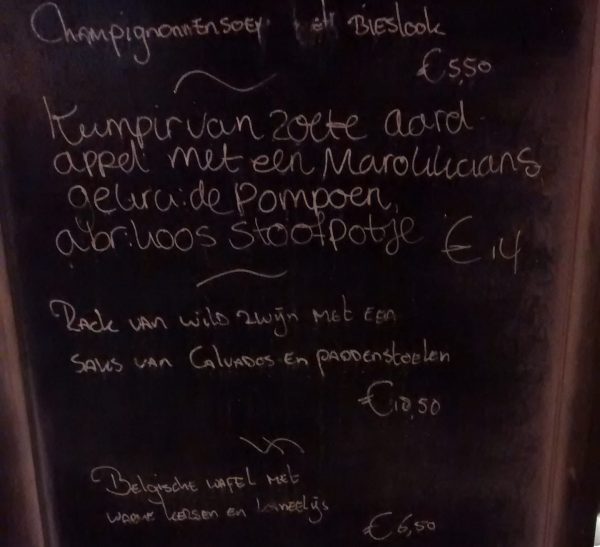 Champignonnensoep met Bieslook
€5,50
Kumpir van zoete aard
appel met een Marokkaans
gekruide Pompoen,
abrikoos stoofpotje €14
Rack van wild zwijn met een
saus van Calvados en paddenstoelen
€18,50
Belgische wafel met
warme kersen en kaneelijs
€6,50